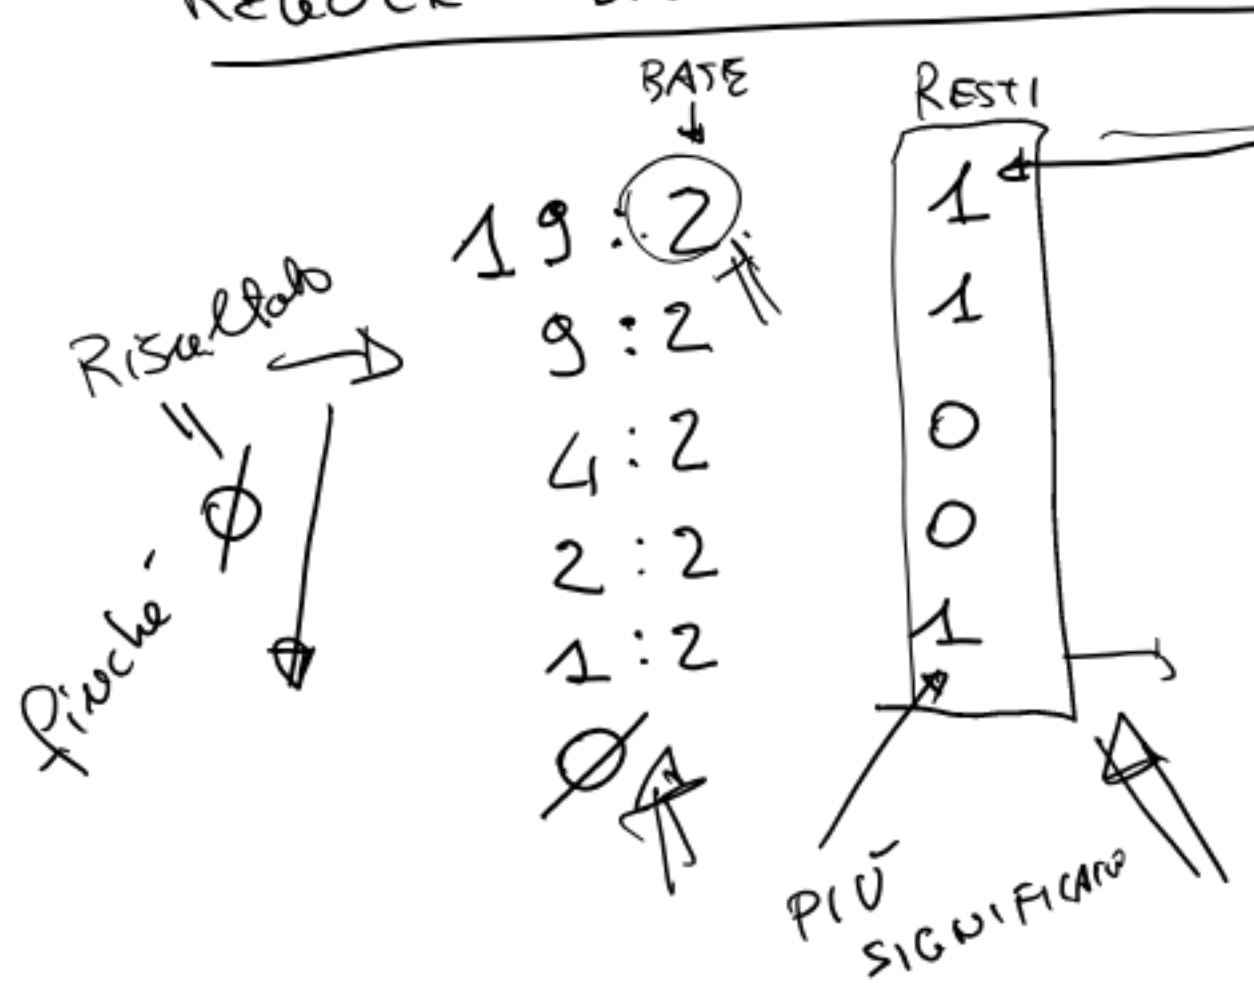 BASE
RESTI
19 : 2 1
9 : 2 1
4 : 2 0
2 : 2 0
1 : 2 1
Ø
Risultato
Ø
finché
PIÙ
SIGNIFICATIVO